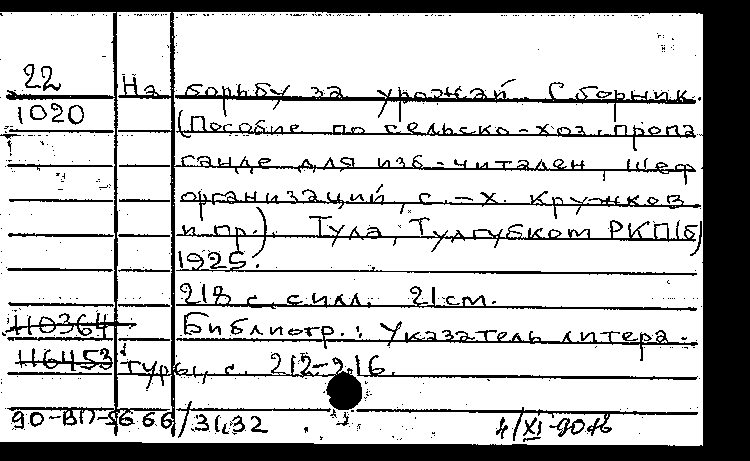 22
На борьбу за урожай. Сборник.
1020
(Пособие по сельско-хоз. пропа
ганде для изб-читален, шеф
организаций, с.-х. кружков
и пр.). Тула, Тулгубком РКП(б)
1925.
218 с. с илл. 21 см.
110364
Библиогр.: Указатель литера-
116453
туры, с. 212-216.
90-ВП-5666/3132